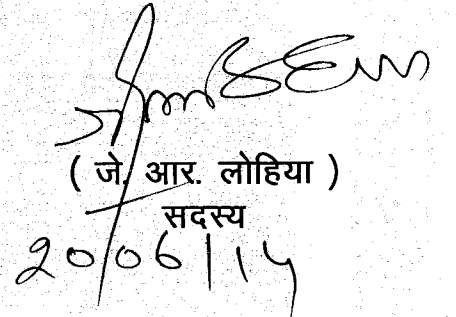 ( जे. आर. लोहिया )
सदस्य
20/06/14